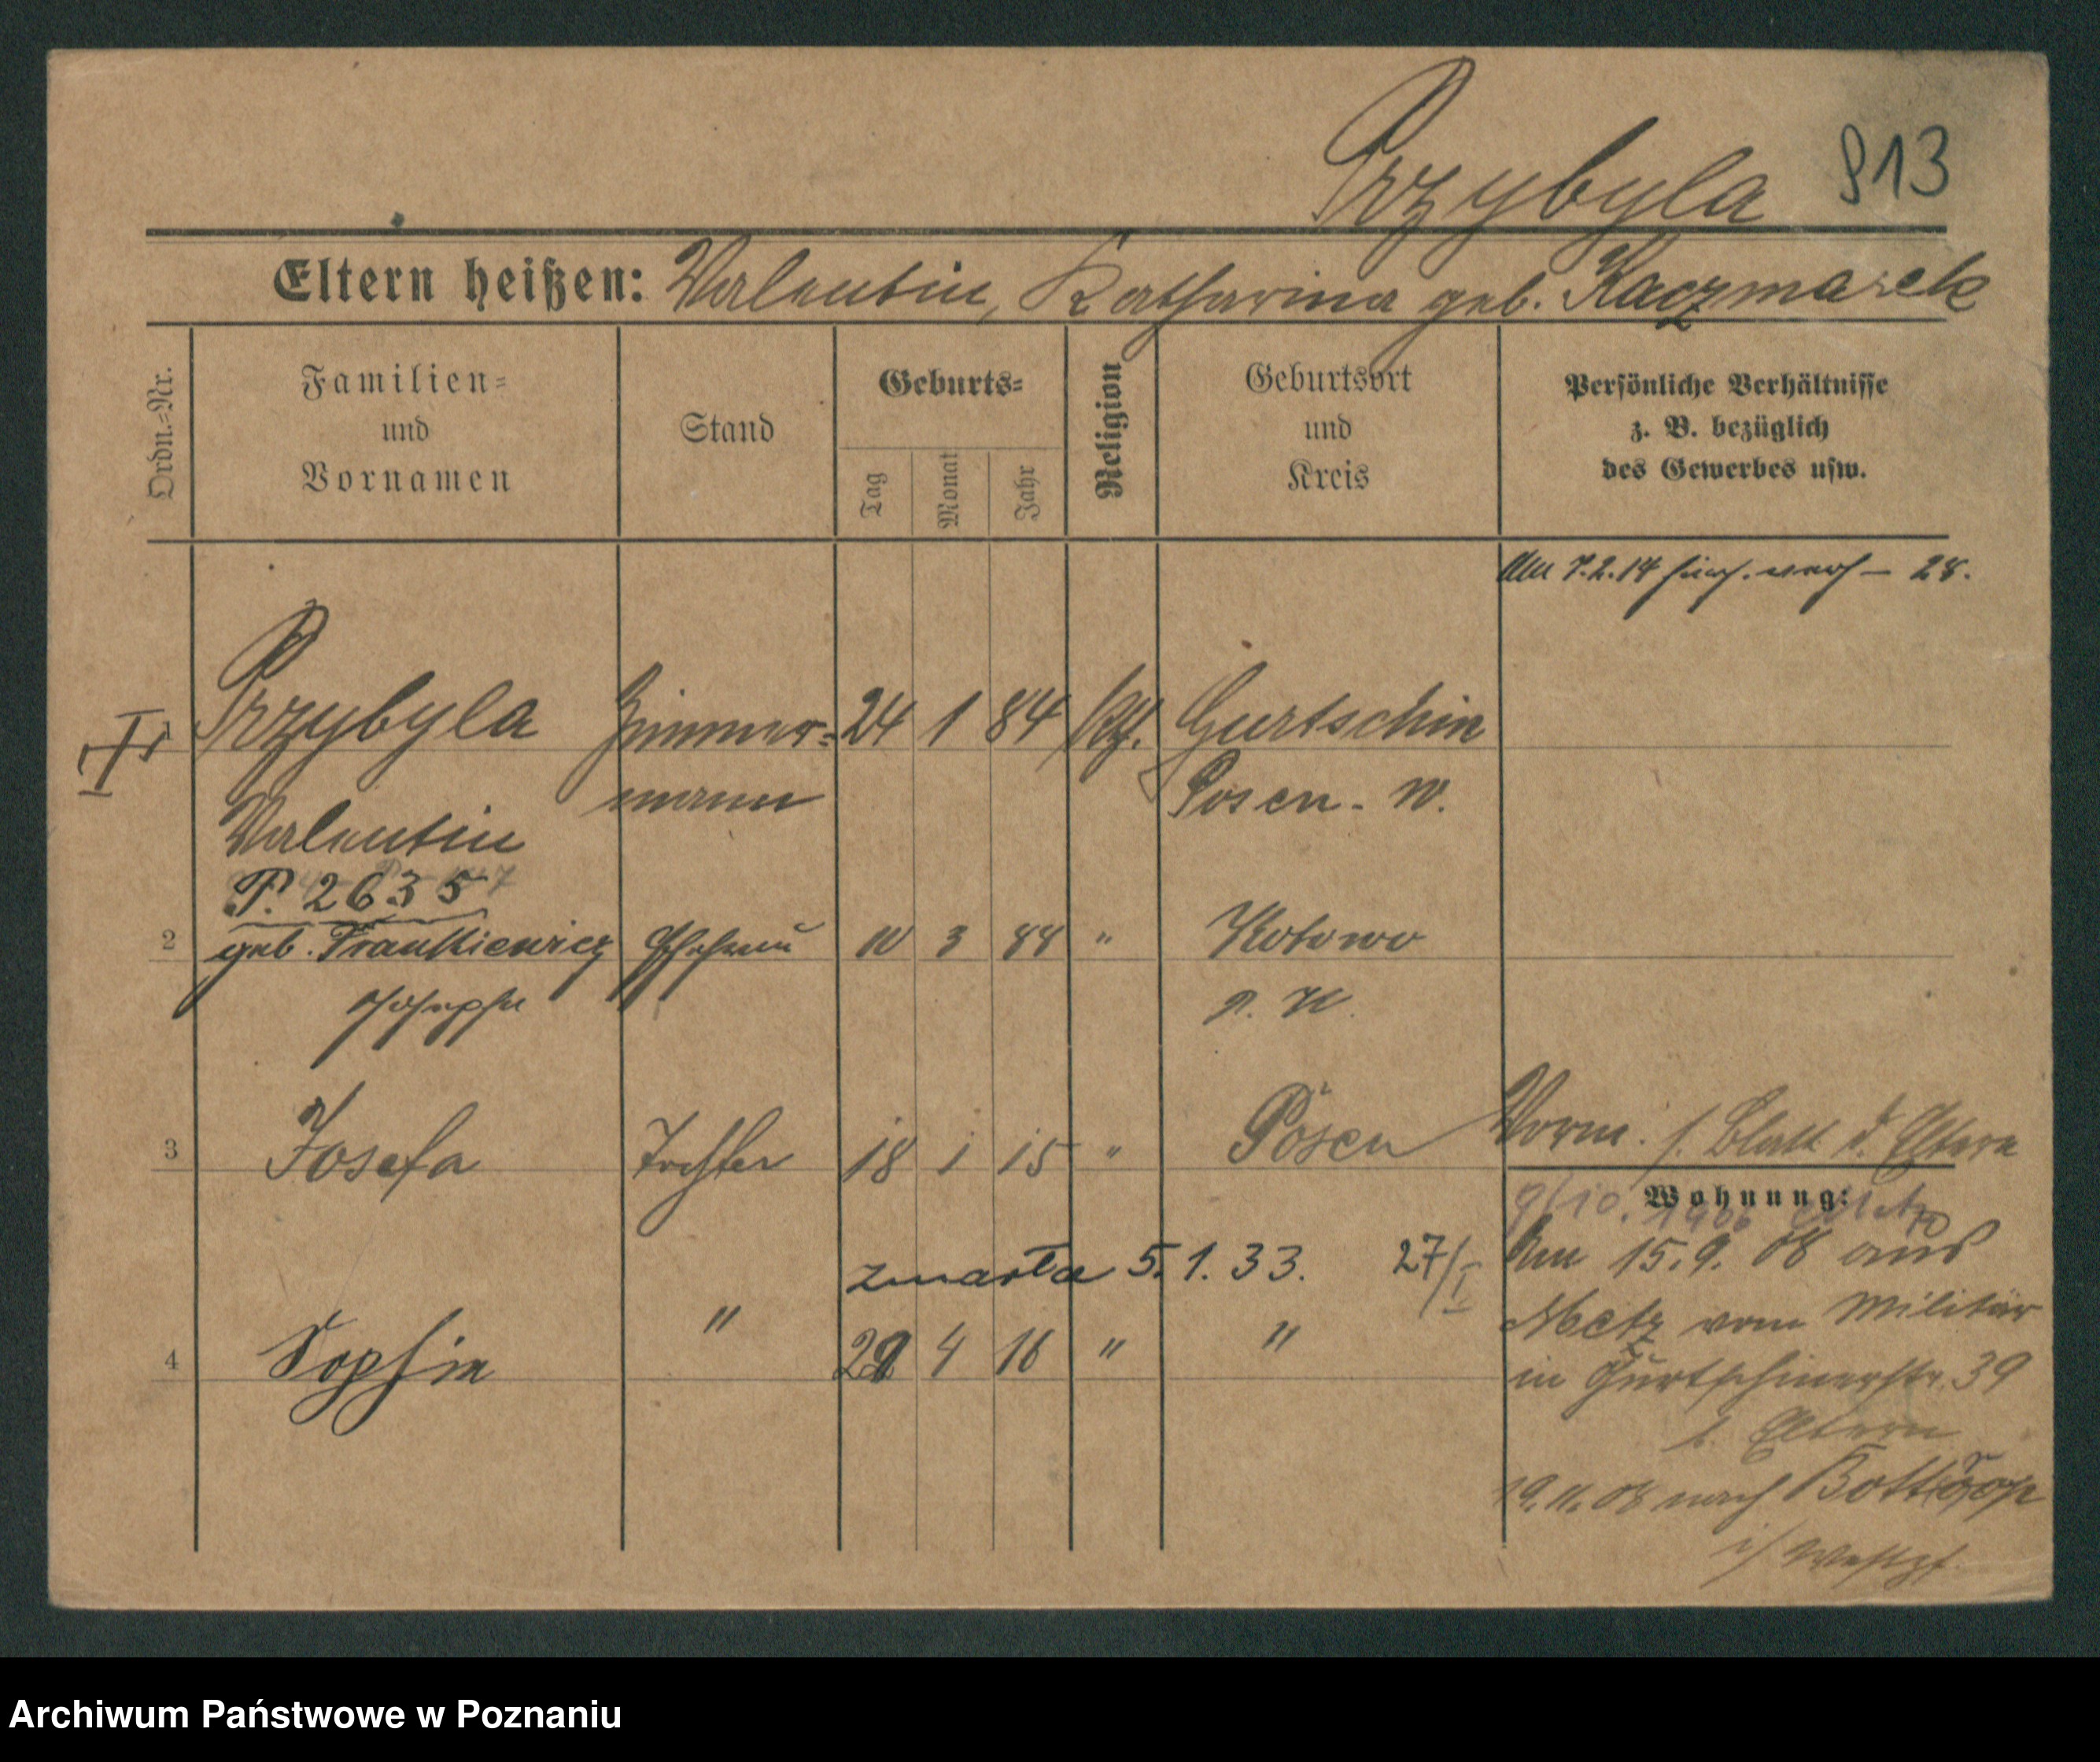 Przybyla 913
Eltern heißen: Valentin, Katharina geb. Kaczmarek
Ordn.-Nr.
Familien-
und
Vornamen
Stand
Geburts-
Tag
Monat
Jahr
Religion
Geburtsort
und
Kreis
Persönliche Verhältnisse
z. B. bezüglich
des Gewerbes usw.
Am 7.2.14 verh – 28.
Przybyla Zimmer- 24 1 84 kth. Gurtschin
mann Posen - W.
Valentin
P. 2635
2 geb. Frankiewicz Ehefrau 10 3 88 " Kotowo
Josepha P. W.
3 Josefa Tochter 18 1 15 " Posen
Vorm. s. Blatt d. Eltern
Wohnung:
9/10. 1906 Metz
zmarła 5.1.33. 27/I
Am 15.9.08 aus
Metz vom Militär
4 Sophie " 4 16 " "
in Gurtschinerstr. 39
b. Eltern
19.11.08 nach Bottrop
i/ Westpf.
Archiwum Państwowe w Poznaniu